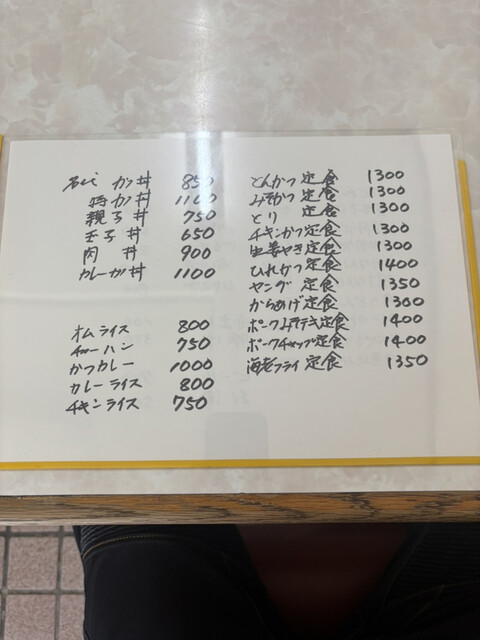 カツ丼 850
特カツ丼 1100
親子丼 750
玉子丼 650
肉丼 900
カレーカツ丼 1100
オムライス 800
チャーハン 750
かつカレー 1000
カレーライス 800
チキンライス 750
とんかつ定食 1300
みそかつ定食 1300
とり定食 1300
チキンかつ定食 1300
生姜やき定食 1300
ひれかつ定食 1400
ヤング定食 1350
からあげ定食 1300
ポークみそテキ定食 1400
ポークチャップ定食 1400
海老フライ定食 1350